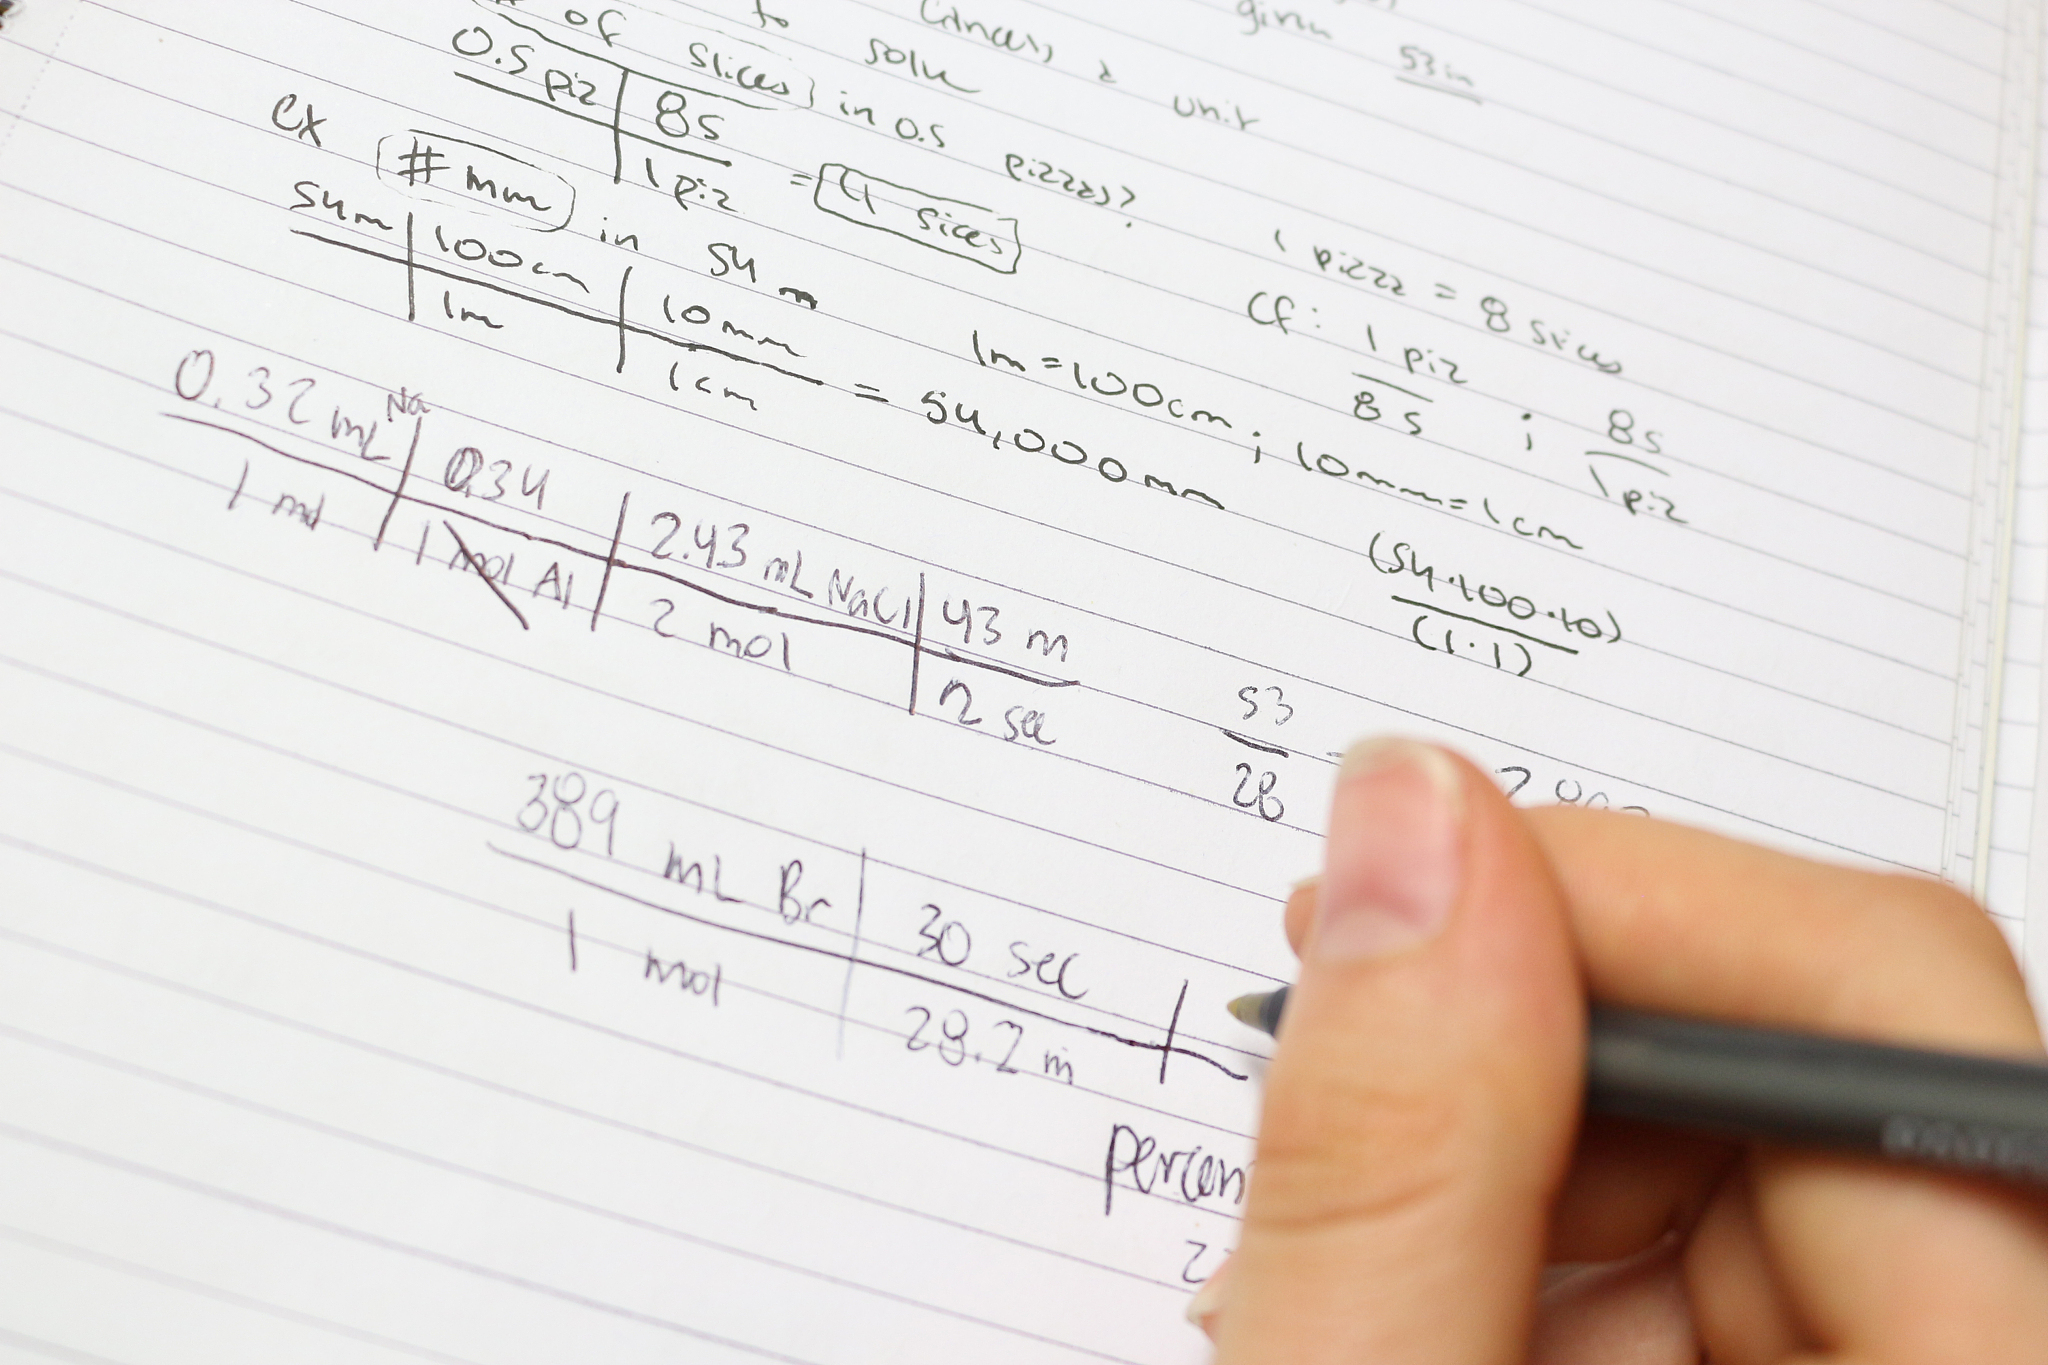 to cancels & given 53in
solve unit
# of slices in 0.5 pizzas?
0.5 piz | 8s
1 piz = 4 sices
1 pizza = 8 slices
cf: 1 piz ; 8s
8s 1 piz
ex # mm in 54 m
1m = 100cm ; 10mm = 1cm
54m | 100cm | 10mm
1m | 1cm = 54,000mm
(54·100·10)
(1·1)
0.32 mL Na | 0.34 | 2.43 mL NaCl | 43 m
1 mol | 1 mol Al | 2 mol | 12 sec
53
28
389 mL Br | 30 sec |
1 mol | 28.2 m
percen
2